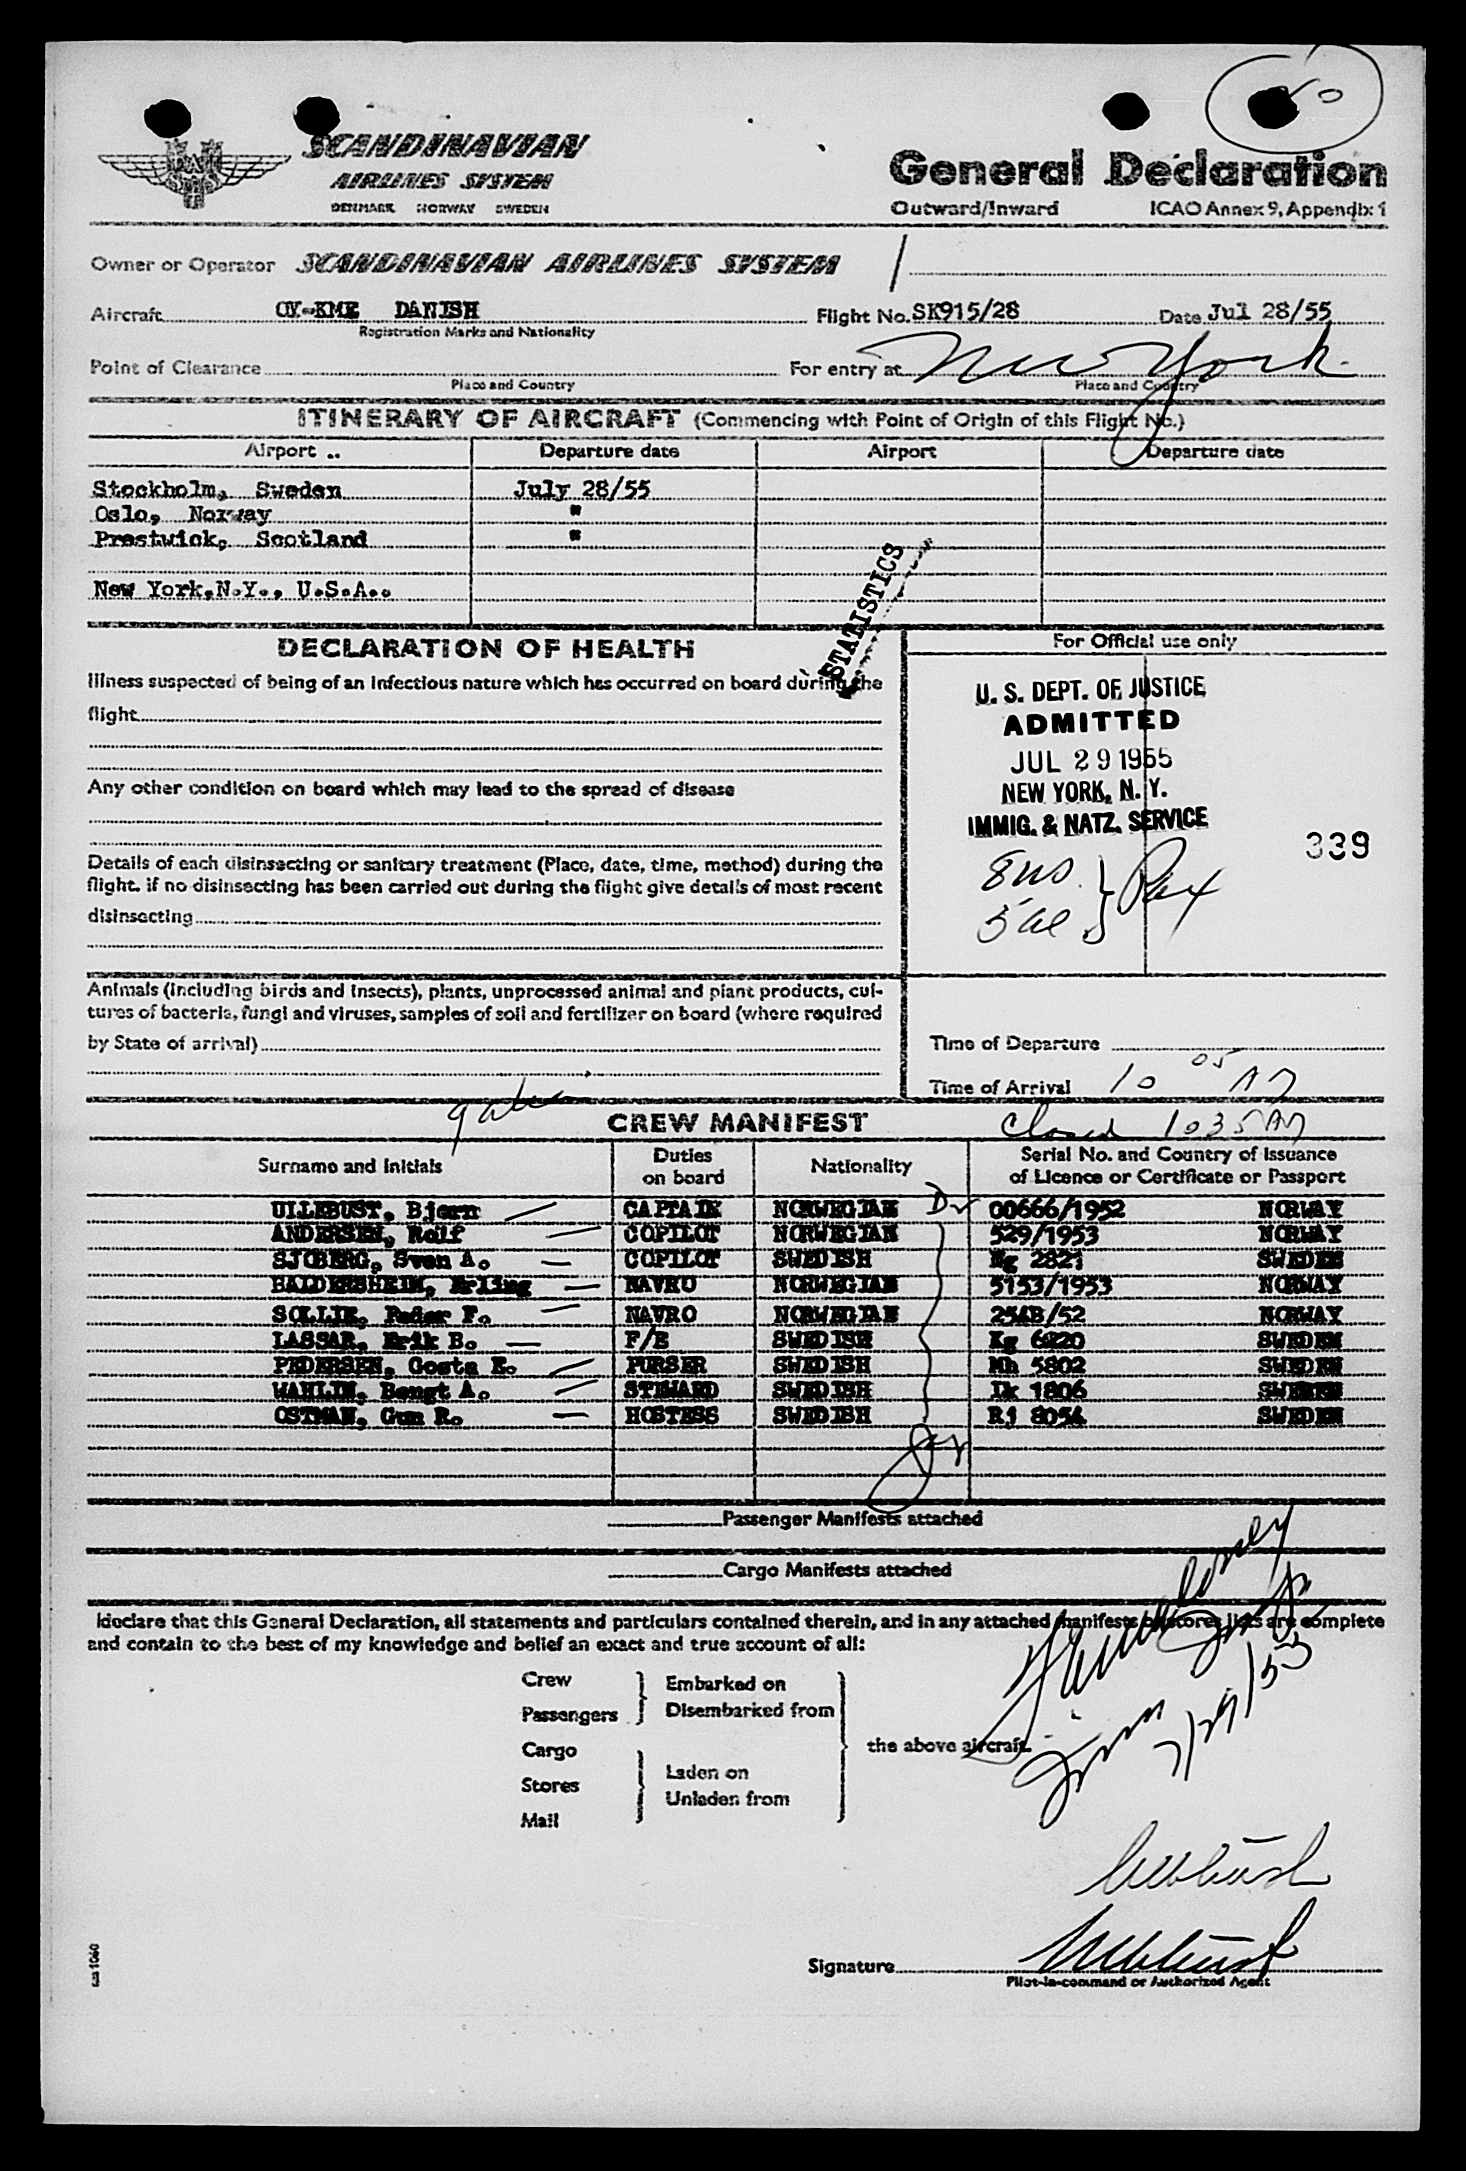 SCANDINAVIAN
AIRLINES SYSTEM
DENMARK NORWAY SWEDEN
General Declaration
Outward/Inward ICAO Annex 9, Appendix 1
Owner or Operator SCANDINAVIAN AIRLINES SYSTEM
Aircraft OY-KME DANISH Flight No. SK915/28 Date Jul 28/55
Registration Marks and Nationality
Point of Clearance For entry at New York
Place and Country Place and Country
ITINERARY OF AIRCRAFT (Commencing with Point of Origin of this Flight No.)
Airport .. Departure date Airport Departure date
Stockholm, Sweden July 28/55
Oslo, Norway "
Prestwick, Scotland "
New York,N.Y., U.S.A..
STATISTICS
DECLARATION OF HEALTH
For Official use only
Illness suspected of being of an infectious nature which has occurred on board during the
flight
U. S. DEPT. OF JUSTICE
ADMITTED
JUL 29 1955
NEW YORK, N. Y.
IMMIG. & NATZ. SERVICE
339
Any other condition on board which may lead to the spread of disease
Details of each disinsecting or sanitary treatment (Place, date, time, method) during the
flight. if no disinsecting has been carried out during the flight give details of most recent
disinsecting
8 us
5 al } Pax
Animals (including birds and insects), plants, unprocessed animal and plant products, cul-
tures of bacteria, fungi and viruses, samples of soil and fertilizer on board (where required
by State of arrival)
Time of Departure
Time of Arrival 10 05 AM
CREW MANIFEST
Closed 1035 AM
Surname and Initials Duties on board Nationality Serial No. and Country of Issuance of Licence or Certificate or Passport
ULLEBUST, Bjorn CAPTAIN NORWEGIAN 00666/1952 NORWAY
ANDERSEN, Rolf COPILOT NORWEGIAN 529/1953 NORWAY
SJOBERG, Sven A. COPILOT SWEDISH 2821 SWEDEN
BALDERSHEIM, Erling NAVRO NORWEGIAN 5153/1953 NORWAY
SOLLIE, Peder F. NAVRO NORWEGIAN 254B/52 NORWAY
LASSAR, Erik B. F/E SWEDISH Kg 6820 SWEDEN
PEDERSEN, Gosta E. PURSER SWEDISH Mh 5802 SWEDEN
WAHLIN, Bengt A. STEWARD SWEDISH Ik 1806 SWEDEN
OSTMAN, Gun R. HOSTESS SWEDISH Rj 8054 SWEDEN
Passenger Manifests attached
Cargo Manifests attached
I declare that this General Declaration, all statements and particulars contained therein, and in any attached manifests or stores lists are complete
and contain to the best of my knowledge and belief an exact and true account of all:
Crew
Passengers
Embarked on
Disembarked from
Cargo
Stores
Mail
Laden on
Unladen from
the above aircraft.
Signature
Pilot-in-command or Authorized Agent